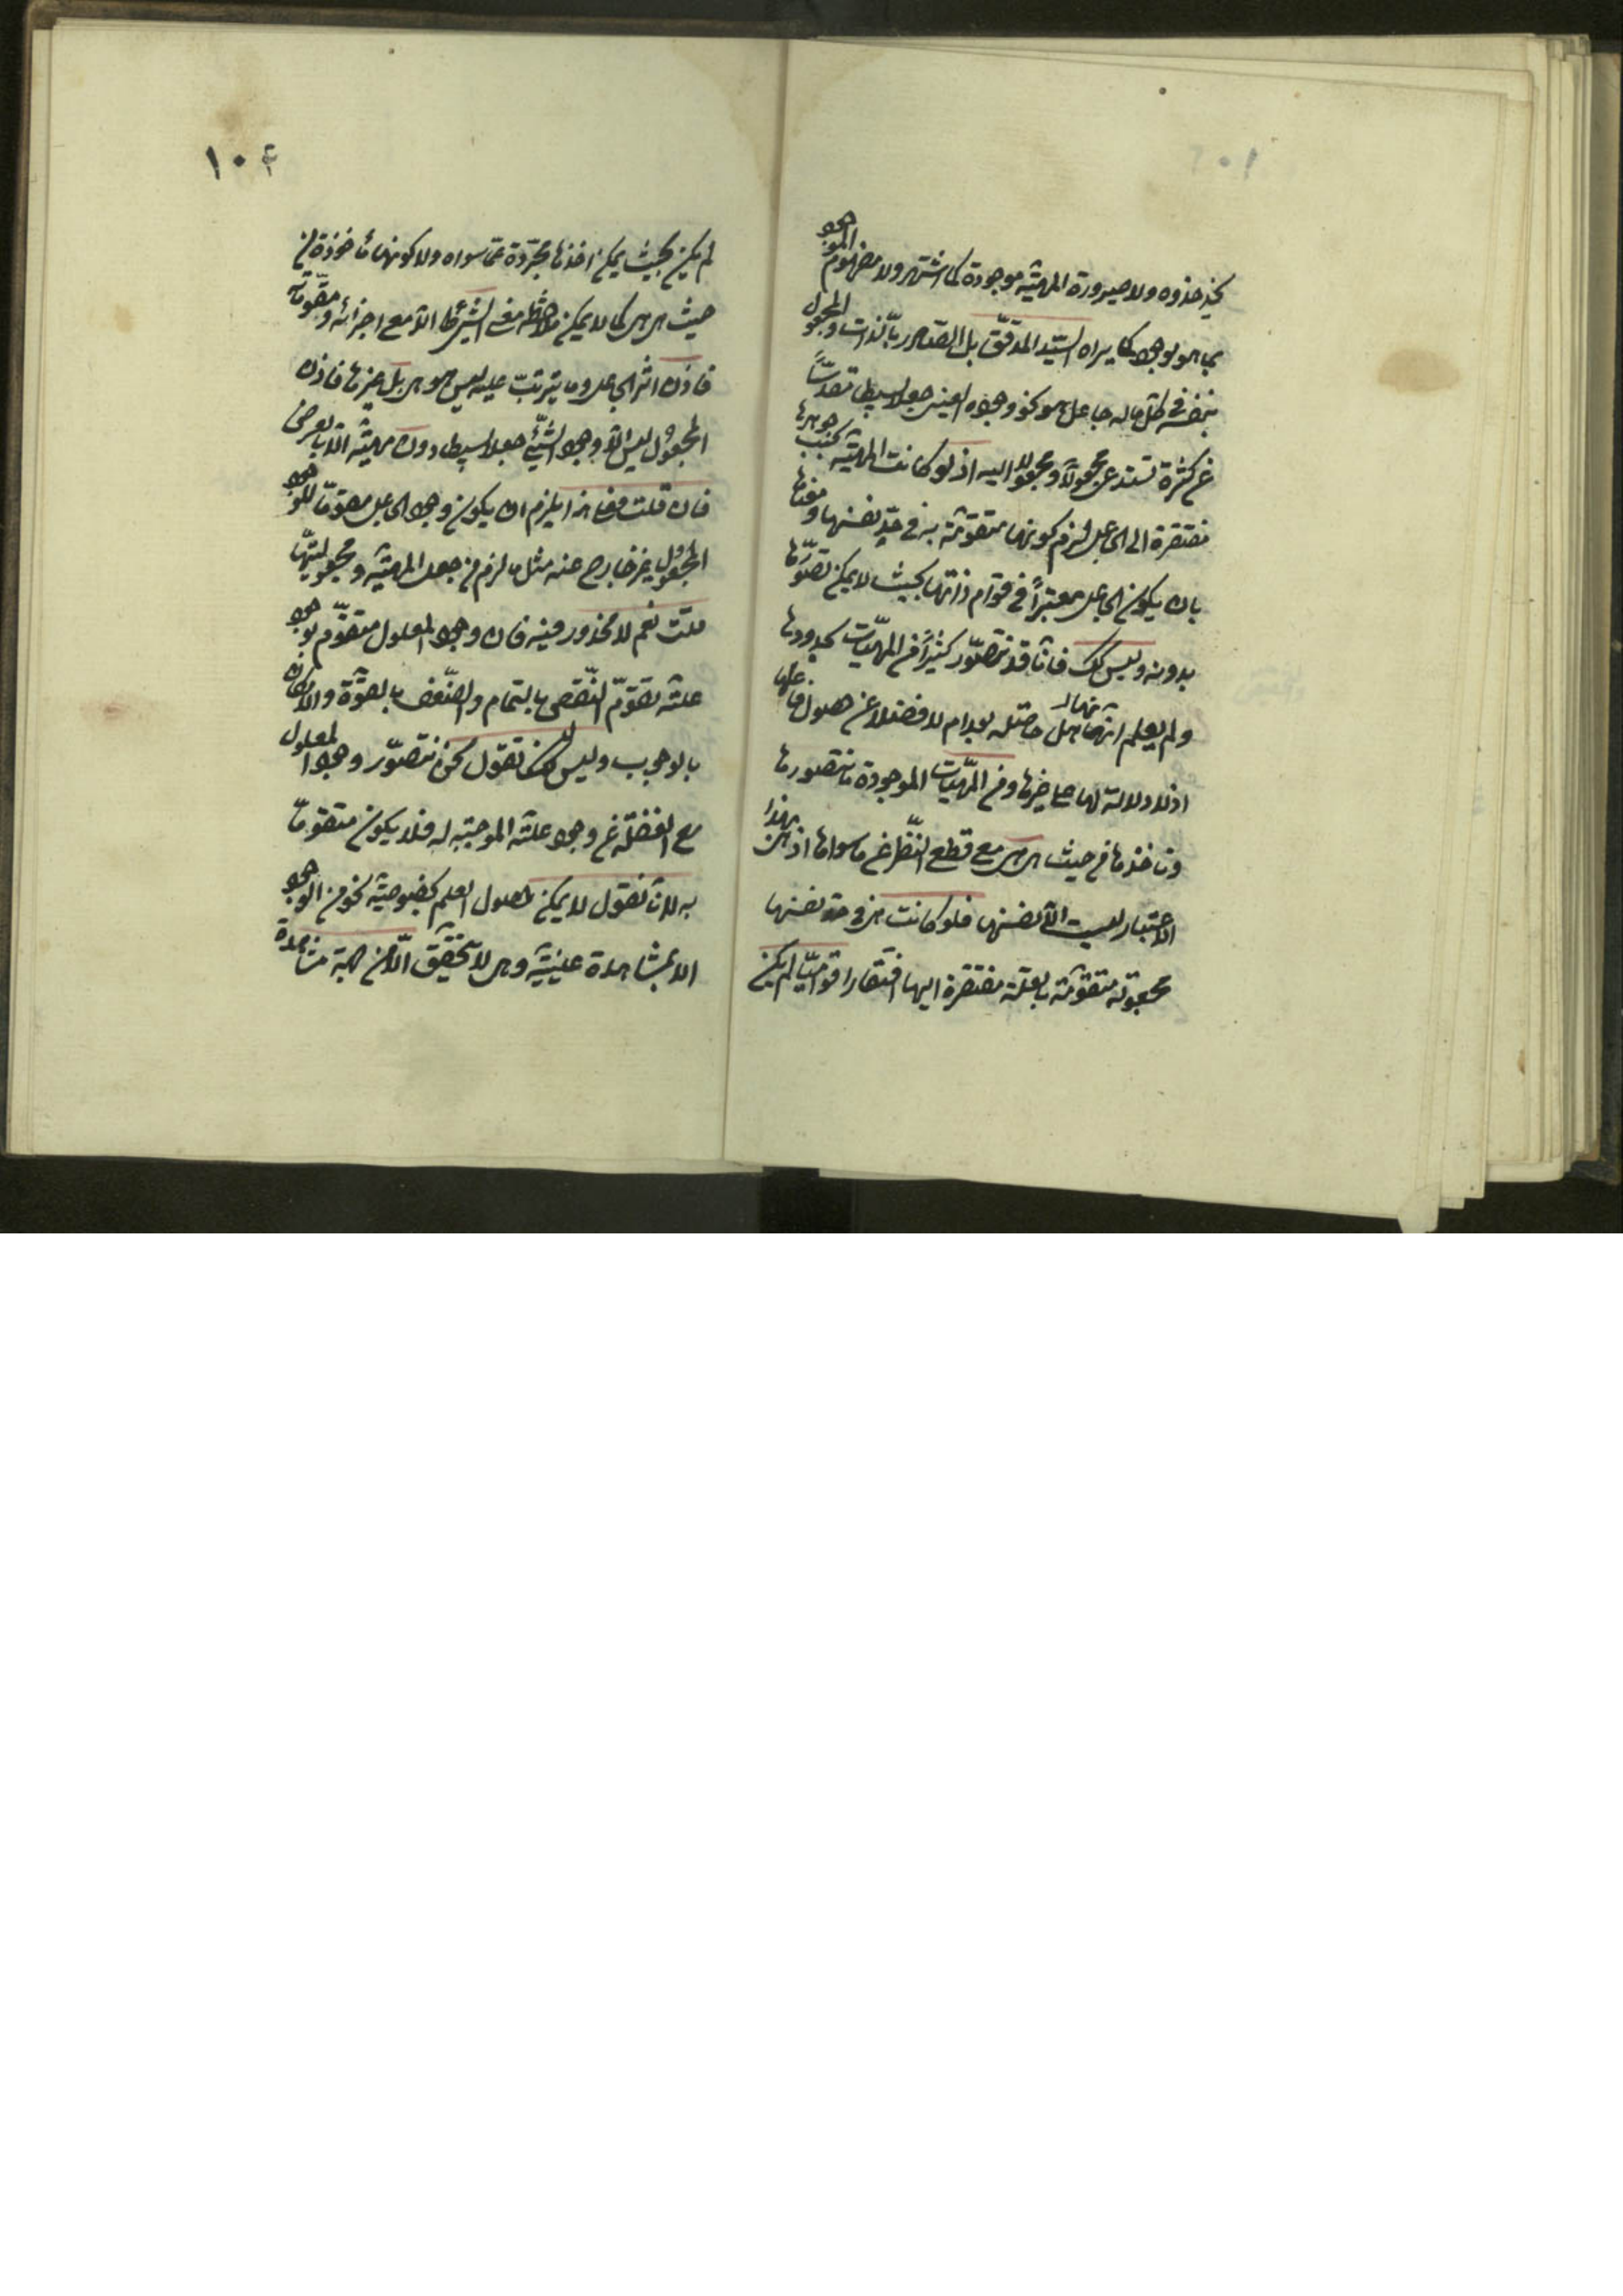 يحذ حذوه ولا صيرورة المهيّة موجودة كما اشتهر ولا مفهوم الموجود
بما هو موجود كما يراه السيّد المدقّق بل الصادر بالذات والمجعول
بنفسه في كلّ ما له جاعل هو نحو وجوده العيني جعلا بسيطا مقدّسًا
عن كثرة تستدعي مجعولًا ومجعولا اليه اذ لو كانت المهيّة بحسب جوهرها
مفتقرة الى الجاعل لزم كونها متقوّمة به في حدّ نفسها ومعناها
بان يكون الجاعل معتبرًا في قوام ذاتها بحيث لا يمكن تصوّرها
بدونه وليس كك فانّا قد نتصوّر كثيرًا من المهيّات بحدودها
ولم يعلم انّها هل حاصلة بعد ام لا فضلا عن حصول فاعلها
اذ لا دلالة لها على غيرها ومن المهيّات الموجودة ما نتصورها
وناخذها من حيث هي هي مع قطع النّظر عن ما سواها اذ هي بهذا
الاعتبار ليست الّا نفسها فلو كانت هي في حد نفسها
مجعولة متقوّمة بالعلّة مفتقرة اليها افتقارا قواميّا لم يكن
١٠٤
لم يكن بحيث يمكن اخذها مجرّدة عمّا سواه ولا كونها مأخوذة من
حيث هي هي كما لا يمكن ملاحظة معنى الشيء الّا مع اجزائه ومقوّماته
فاذن اثر الجاعل وما يترتّب عليه ليس هو هي بل غيرها فاذن
المجعول ليس الّا وجود الشّيء جعلا بسيطا دون مهيّته الّا بالعرض
فان قلت فعلى هذا يلزم ان يكون وجود الجاعل مقوّما للوجود
المجعول غير خارج عنه مثل ما لزم من جعل المهيّة ومجعوليتها
قلت نعم لا محذور فيه فان وجود المعلول متقوّم بوجود
علّته تقوّم النّقص بالتمام والضّعف بالقوّة والامكان
بالوجوب وليس لك ان تقول نحن نتصوّر وجود المعلول
مع الغفلة عن وجود علّته الموجبة له فلا يكون متقوّما
به لانّا نقول لا يمكن حصول العلم بخصوصيّة نحو من الوجود
الا بمشاهدة عينيّة وهي لا تحقّق الّا من جهة مشاهدة